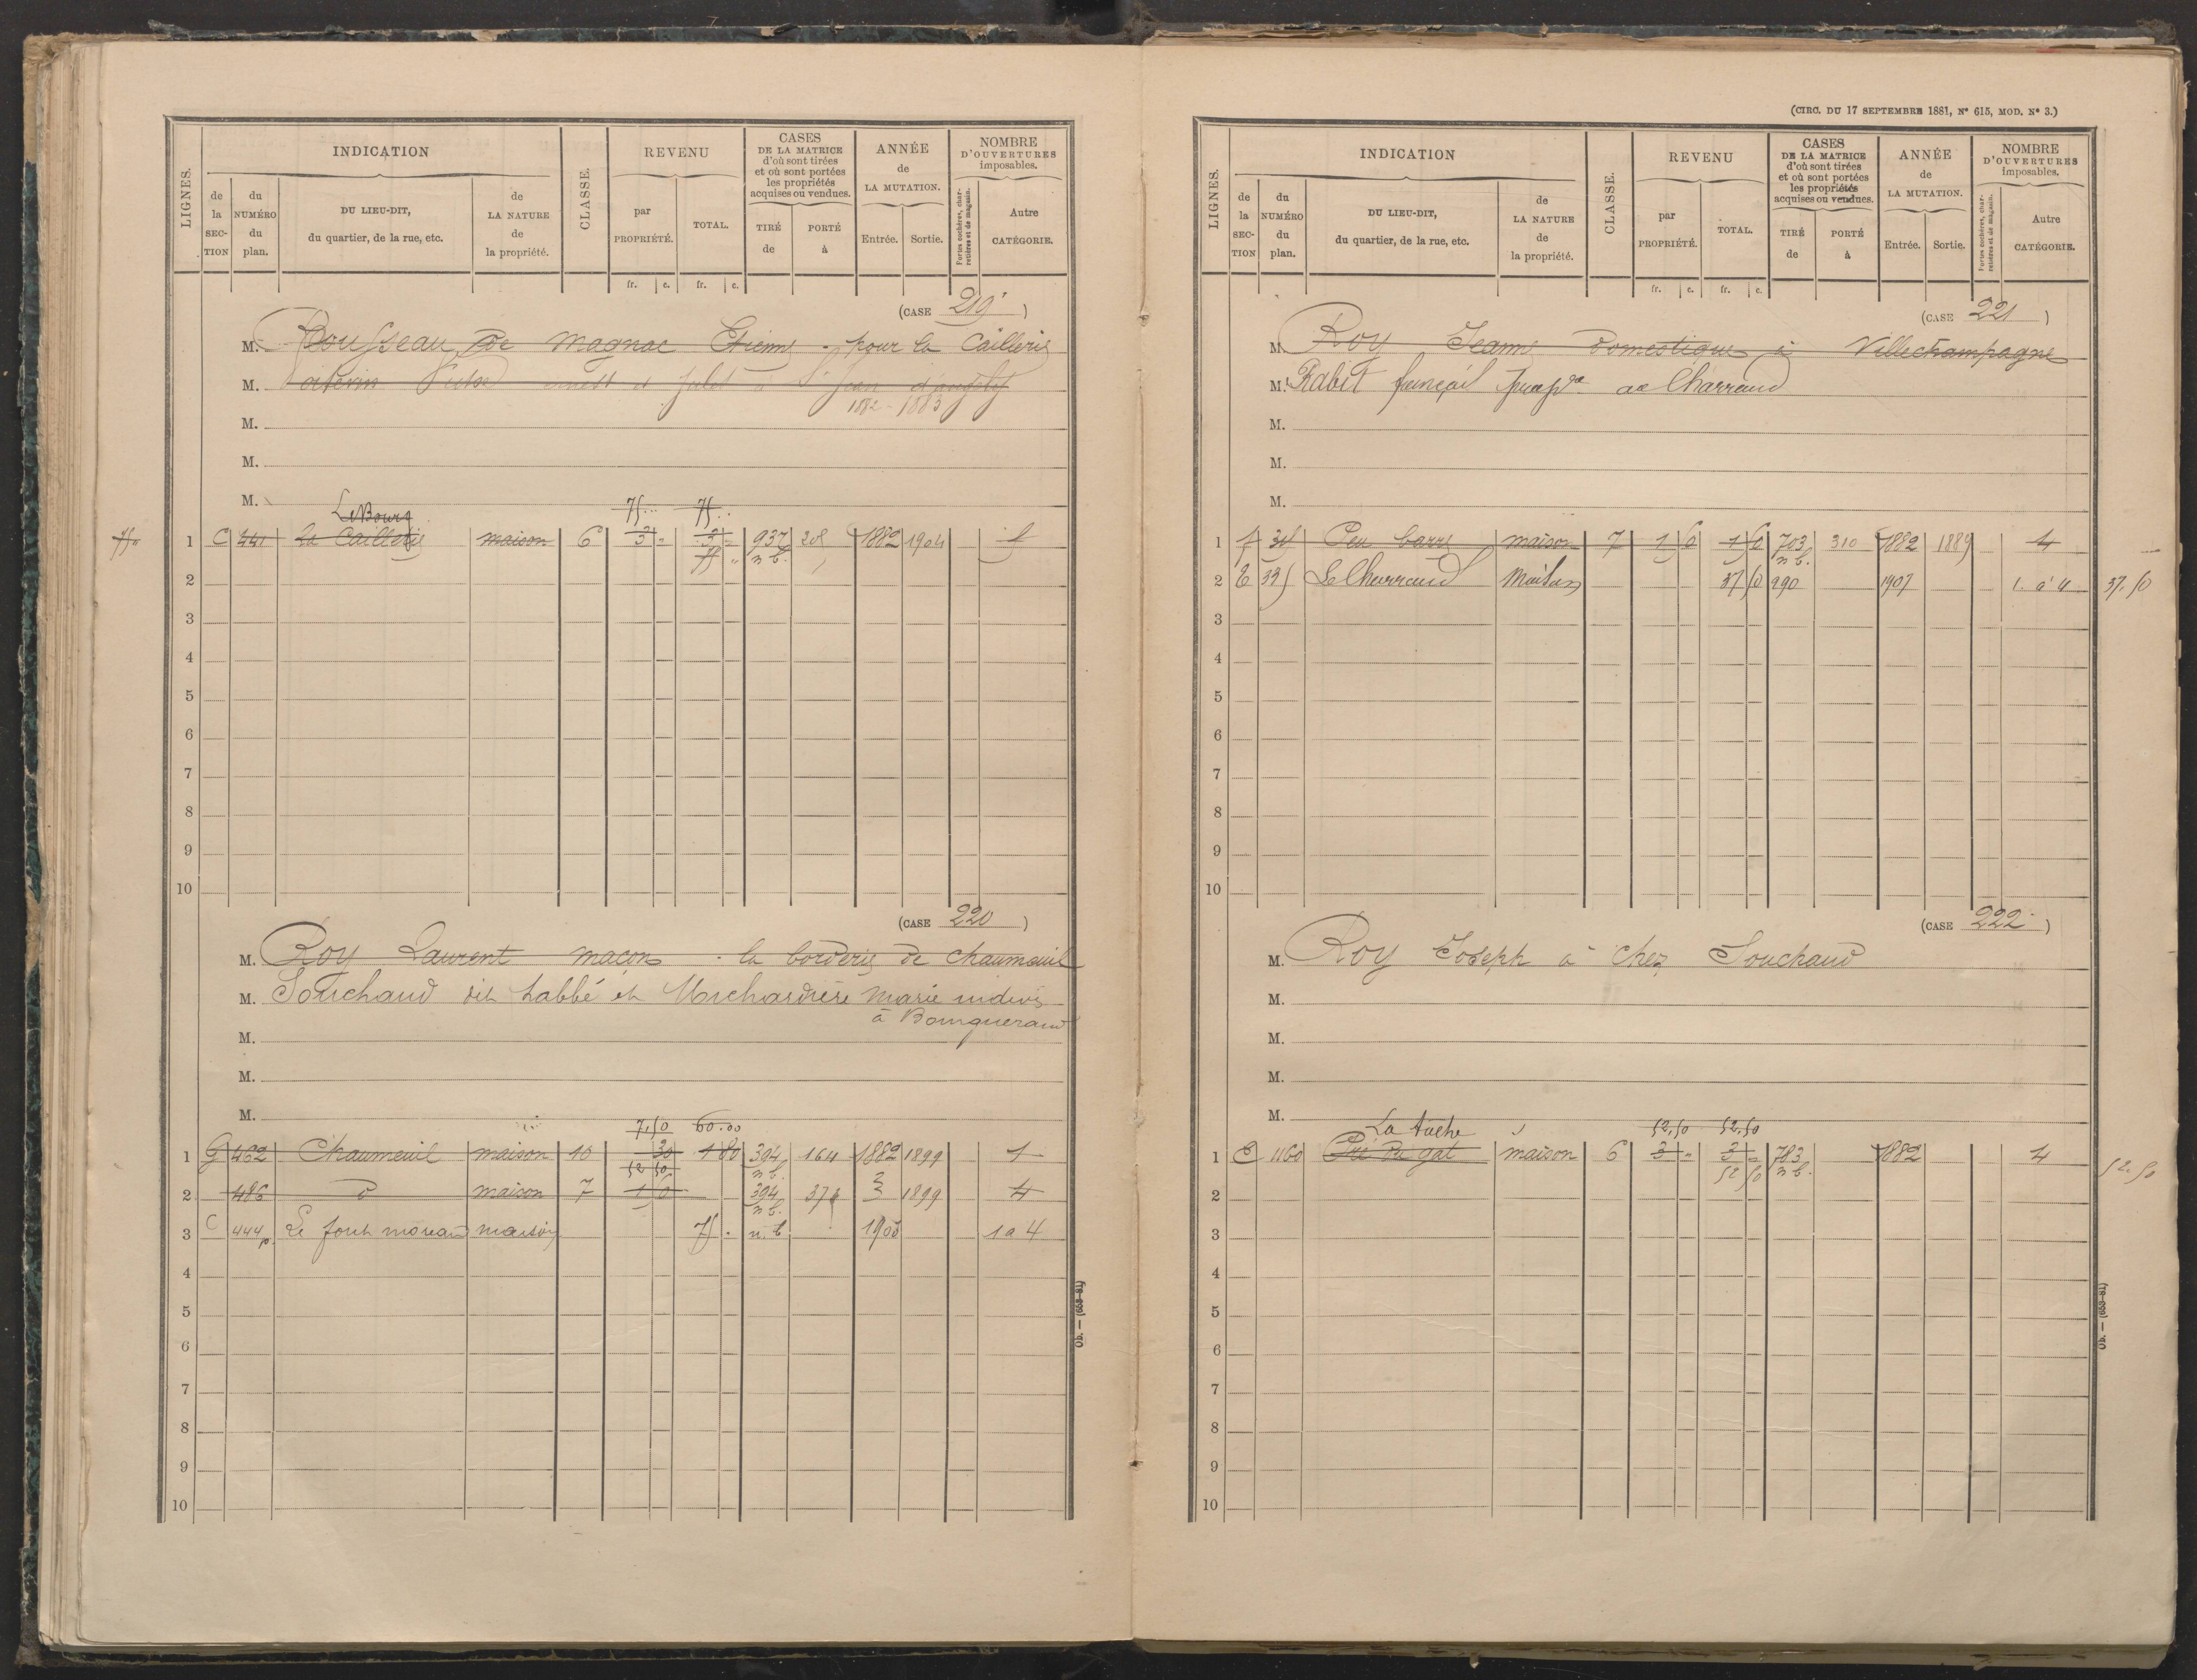 INDICATION
REVENU
CASES
DE LA MATRICE
d'où sont tirées
et où sont portées
les propriétés
acquises ou vendues.
ANNÉE
de
LA MUTATION.
NOMBRE
D'OUVERTURES
imposables.
LIGNES.
de la SEC-TION
du NUMÉRO du plan.
DU LIEU-DIT,
du quartier, de la rue, etc.
de LA NATURE de la propriété.
CLASSE.
par PROPRIÉTÉ.
TOTAL.
TIRÉ de
PORTÉ à
Entrée.
Sortie.
Portes cochères, charretières et de magasin.
Autre CATÉGORIE.
fr. c. fr. c.
(CASE 219)
M. Rousseau de Magnac Etienne pour la Caillerie
M.
1882 - 1883
M.
M.
M.
Le Bourg 75 75
1 C 441 la Caillerie maison 6 3 " 3 " 937 208 1882 1904
n b.
2
3
4
5
6
7
8
9
10
(CASE 220)
M. Roy Laurent maçon à la borderie de Chaumeuil
M. Souchaud dit Labbé et Marie indivis
à Bouqueraud
M.
M.
M.
7.50 60.00
1 G 462 Chaumeuil maison 10 30 1 80 394 164 1882 1899 1
52 50 n b.
2 486 d maison 7 1 50 394 1899 4
n b.
3 C 444p. maison 75 . n. b. 1900 1 a 4
4
5
6
7
8
9
10
Ob. — (653-81)
(CIRC. DU 17 SEPTEMBRE 1881, N° 615, MOD. N° 3.)
INDICATION
REVENU
CASES
DE LA MATRICE
d'où sont tirées
et où sont portées
les propriétés
acquises ou vendues.
ANNÉE
de
LA MUTATION.
NOMBRE
D'OUVERTURES
imposables.
LIGNES.
de la SEC-TION
du NUMÉRO du plan.
DU LIEU-DIT,
du quartier, de la rue, etc.
de LA NATURE de la propriété.
CLASSE.
par PROPRIÉTÉ.
TOTAL.
TIRÉ de
PORTÉ à
Entrée.
Sortie.
Portes cochères, charretières et de magasin.
Autre CATÉGORIE.
fr. c. fr. c.
(CASE 221)
M. Roy Jeanne domestique à Villechampagne
M. Rabit françois au Charraud
M.
M.
M.
1 Peu barre maison 7 703 310 1882 1889 4
n b.
2 Le Charraud Maison 37 50 290 1907 1 à 4 37.50
3
4
5
6
7
8
9
10
(CASE 222)
M. Roy Joseph à chez Souchaud
M.
M.
M.
M.
La tache 52.50 52.50
1 1160 Pré du gat maison 6 3 " 3 " 783 1882 4 52.50
52 50 n b.
2
3
4
5
6
7
8
9
10
Ob. — (653-81)